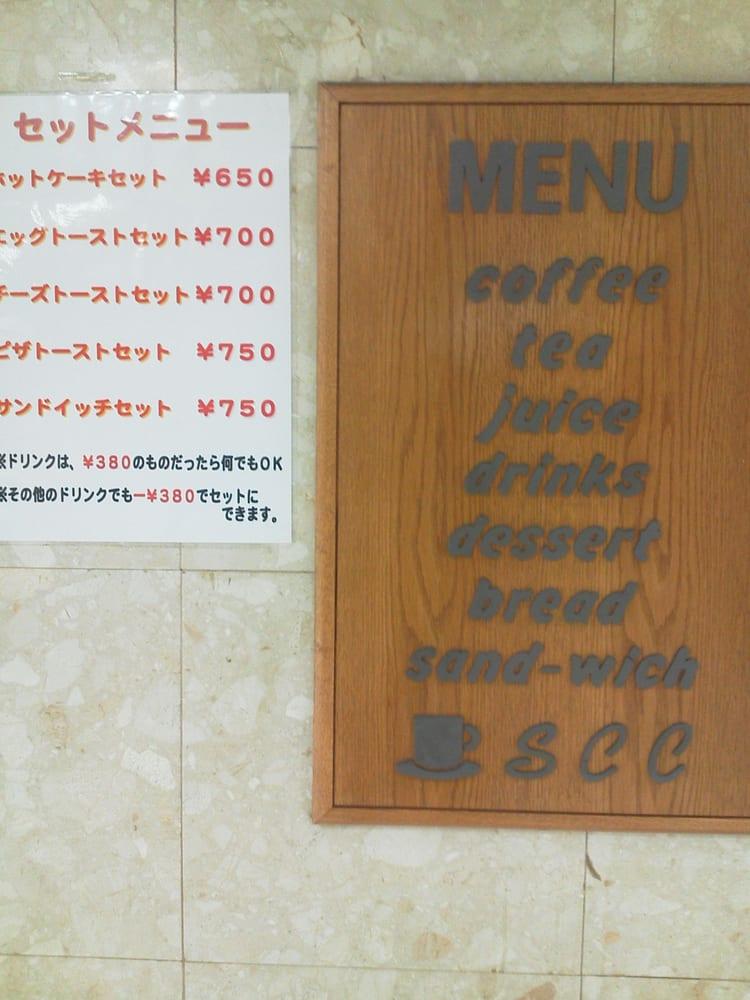 セットメニュー
ホットケーキセット ￥650
エッグトーストセット ￥700
チーズトーストセット ￥700
ピザトーストセット ￥750
サンドイッチセット ￥750
※ドリンクは、￥380のものだったら何でもOK
※その他のドリンクでも－￥380でセットに
できます。
MENU
coffee
tea
juice
drinks
dessert
bread
sand-wich
SCC